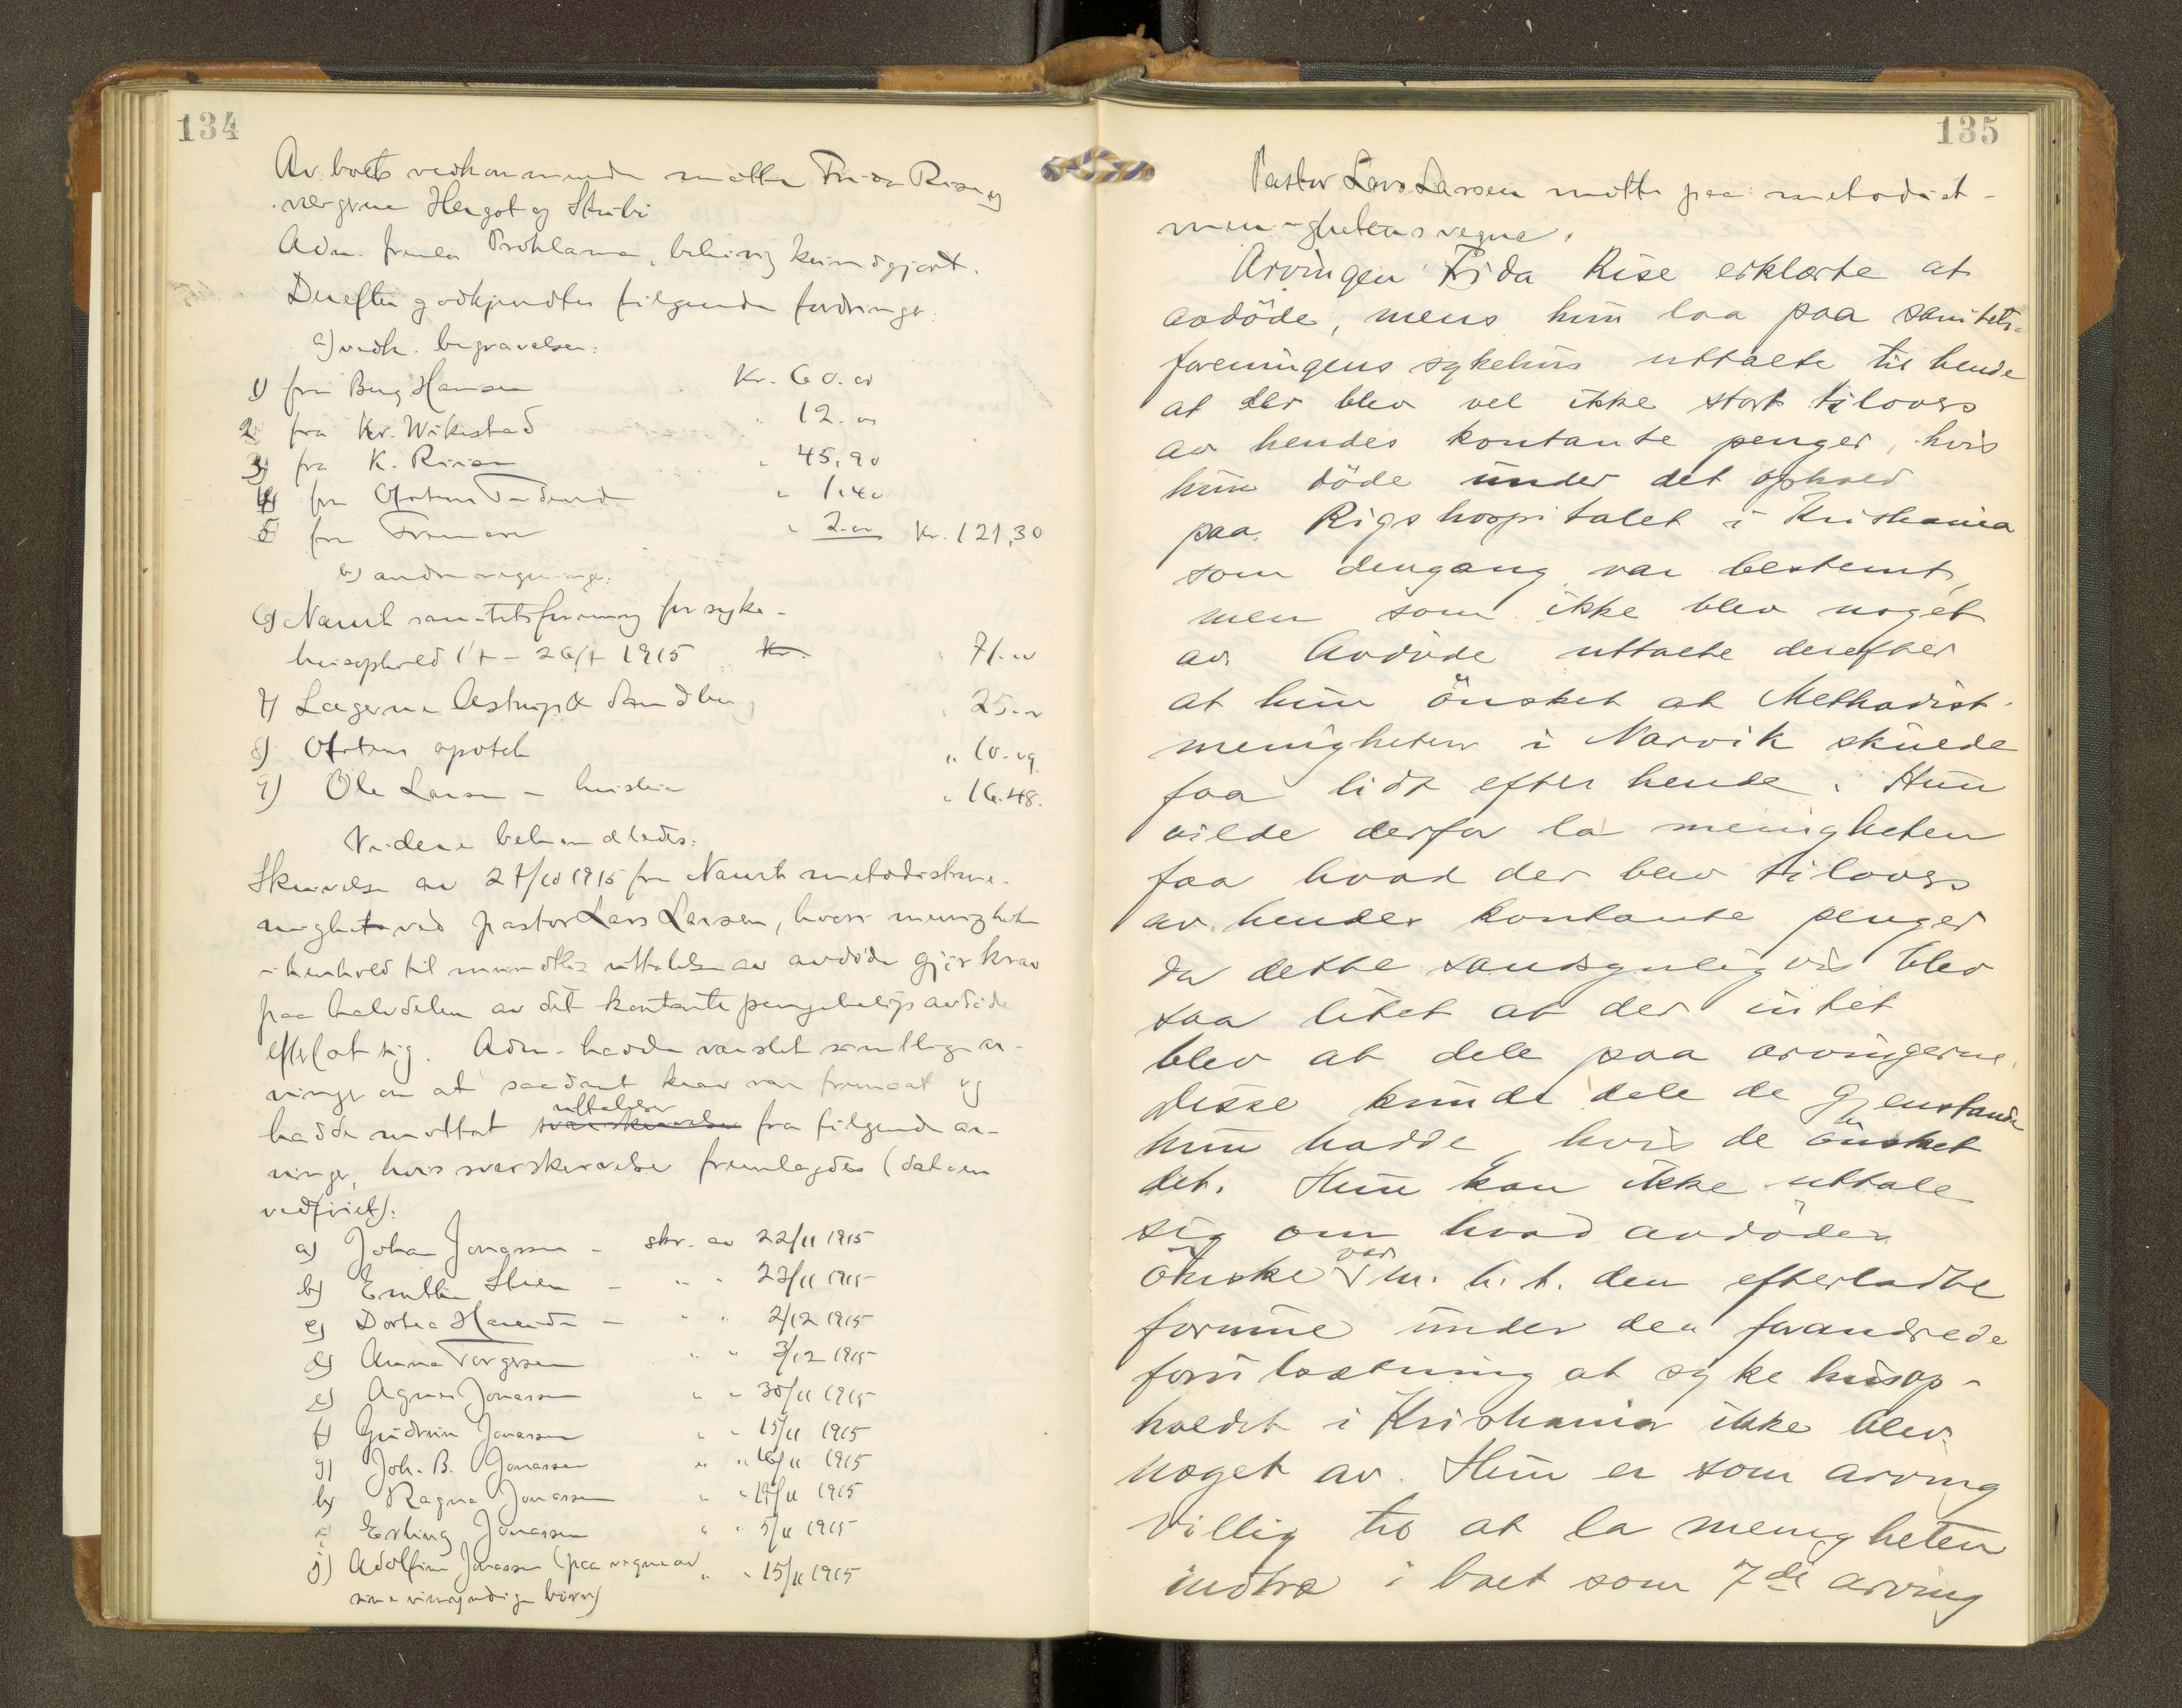 134
Av boets vedkommende møtte Frida Rise og
vergerne Hergot og
Adm. fremla Proklama, behørig kundgjort.
Derefter godkjendtes følgende fordringer:
a) vedk. begravelsen:
1) fra Berg Hansen Kr. 60.00
2 fra Kr. Wikestad " 12.00
3) fra K. " 45,90
4) fra Ofotens Tidende " 1.40
5 fra " 2.00 Kr. 121,30
b) andre regninger:
6) Narvik sanitetsforening for syke-
husophold 1/7 - 26/7 1915 Kr. " 71.00
7) Lægerne Aestrup & Sandberg " 25.00
8) Ofotens apotek " 10.09
9) Ole Larsen - husleie " 16.48.
Videre behandledes:
Skrivelse av 27/10 1915 fra Narvik metodistme-
nighet ved pastor Lars Larsen, hvori menigheten
i henhold til mundtlig uttalelse av avdøde gjør krav
paa halvdelen av det kontante pengebeløp avdøde
efterlot sig. Adm. hadde varslet samtlige ar-
vinger om at saadant krav var fremsat og
uttalelser
hadde mottat svarskrivelser fra følgende ar-
vinger, hvis svarskrivelser fremlagdes (datoen
vedføiet):
a) Johan Jonassen - skr. av 22/11 1915
b) - " " 23/11 1915
c) Dortea - " " 2/12 1915
d) Anna Torgersen " " 3/12 1915
e) Agnes Jonassen " " 30/11 1915
f) Gudrun Jonassen " " 15/11 1915
g) Joh. B. Jonassen " " 16/11 1915
h) Ragna Jonassen " " 19/11 1915
i) Erling Jonassen " " 5/11 1915
j) Adolfine Jonassen (paa vegne av " " 15/11 1915
sine umyndige børn)
135
Pastor Lars Larsen møtte paa metodist-
menighetens vegne.
Arvingen Frida Rise erklærte at
avdöde, mens hun laa paa sanitets-
foreningens sykehus uttalte til hende
at der blev vel ikke stort tilovers
av hendes kontante penger, hvis
hun döde under det ophold
paa Rigshospitalet i Kristiania
som dengang var bestemt,
men som ikke blev noget
av. Avdöde uttalte derefter
at hun önsket at Methodist-
menigheten i Narvik skulde
faa lidt efter hende. Hun
vilde derfor la menigheten
faa hvad der blev tilovers
av hendes kontante penger
da dette sandsynligvis blev
saa litet at der intet
blev at dele paa arvingerne.
Disse kunde dele de gjenstande
hun hadde, hvis de önsket
det. Hun kan ikke uttale
sig om hvad avdödes
önske var m. h. t. den efterladte
formue under den forandrede
forutsætning at sykehusop-
holdet i Kristiania ikke blev
noget av. Hun er som arving
villig til at la menigheten
indtræ i boet som 7de arving